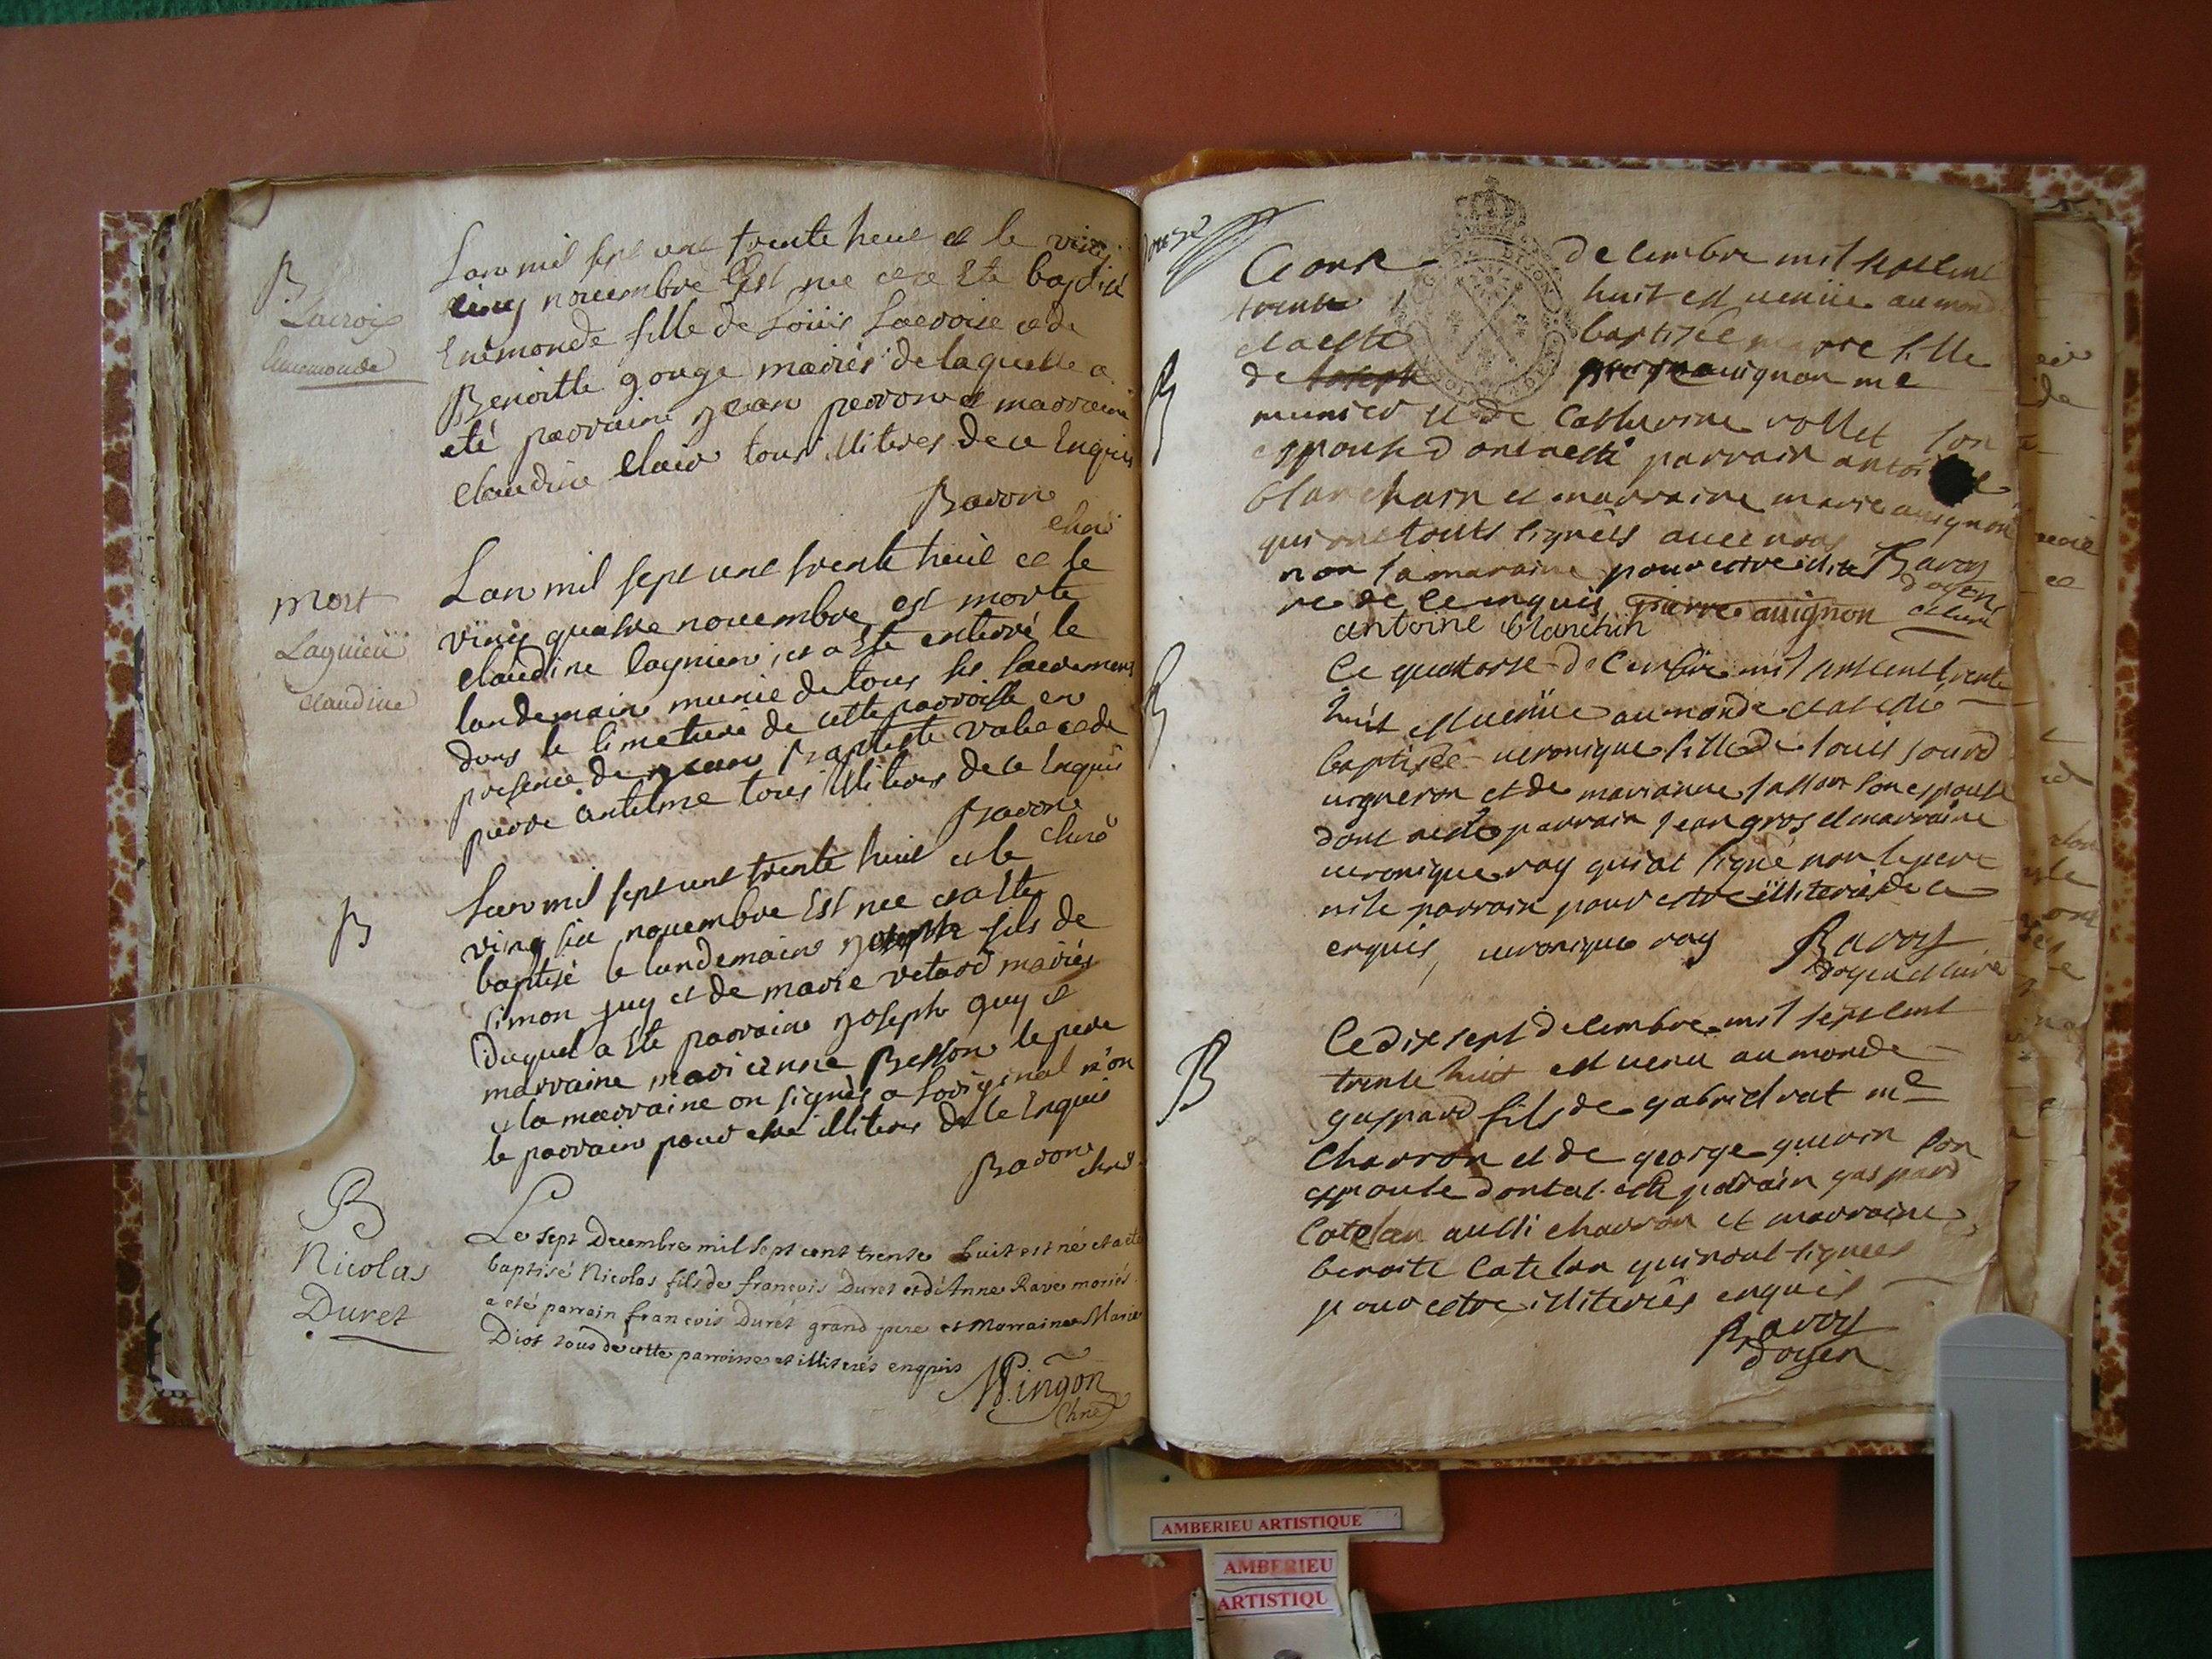 B
Lacroix
Ennemonde
Lan mil sept cent trente heuit et le vingt
cinq novembre Est nee et a Eté baptisé
Enemonde fille de Loüis Lacroise et de
Benoitte gouge mariés de laquelle a
eté parrain jean perron et marraine
claudine clair tous illiteres de ce Enquis
Baron
churé
mort
Lagnieü
claudine
Lan mil sept cent trente heuit et le
vingt quatre novembre est morte
claudine lagnieu, et a Eté enterré le
landemain munie de tous ses sacremens
dans le cimetiere de cette parroisse en
presence de jean baptiste et de
pierre antelme tous illiteres de ce Enquis
Baron
churé
B
Lan mil sept cent trente heuit et le
vingt six novembre Est nee et a Eté
baptisé le landemain joseph fils de
simon juy et de marie vetard mariés
Duquel a Eté parrain joseph guy et
marraine marianne Besson le pere
et la marraine on signés a loriginal n'on
le parrain pour etre illiteres de ce Enquis
Baron
churé
B
Nicolas
Duret
Le sept Decembre mil sept cent trente huit est né et a eté
baptisé Nicolas fils de francois Duret et d'Anne Rave mariés
a eté parrain francois Duret grand pere et Marraine Marie
Diot tous de cette parroisse et illiterés enquis
Mingon
Curé
douze
Ce onze decembre mil sept cent
trente huit est venüe au monde
et a esté baptisée marie fille
de joseph avignon me
munier et de Catherine rollet son
espouse dont a esté parrain antoine
blanchain et marraine marie avignon
qui ont touts signéés avec nous
non la maraine pour estre illite
re de ce enquis pierre avignon
Baron
doyen
et curé
antoine blanchin
B
B
Ce quatorse decembre mil sept cent trente
huit est venüe au monde et at esté
baptisée veronique fille de louis jourd
vigneron et de marianne son espouse
dont at esté parrain jean gros et marraine
veronique ray qui at signé non le pere
ni le parrain pour estre illiterés de ce
enquis, veronique ray
Baron
doyen et curé
B
Ce dix sept decembre mil sept cent
trente huit est venu au monde
gaspard fils de gabriel rat me
charron et de george guerin son
espouse dont at esté parrain gaspard
Catelan aussi charron et marraine
benoite Catelan qui n'ont signees
pour estre illiterés enquis
Baron
doyen
AMBERIEU ARTISTIQUE
AMBERIEU
ARTISTIQU